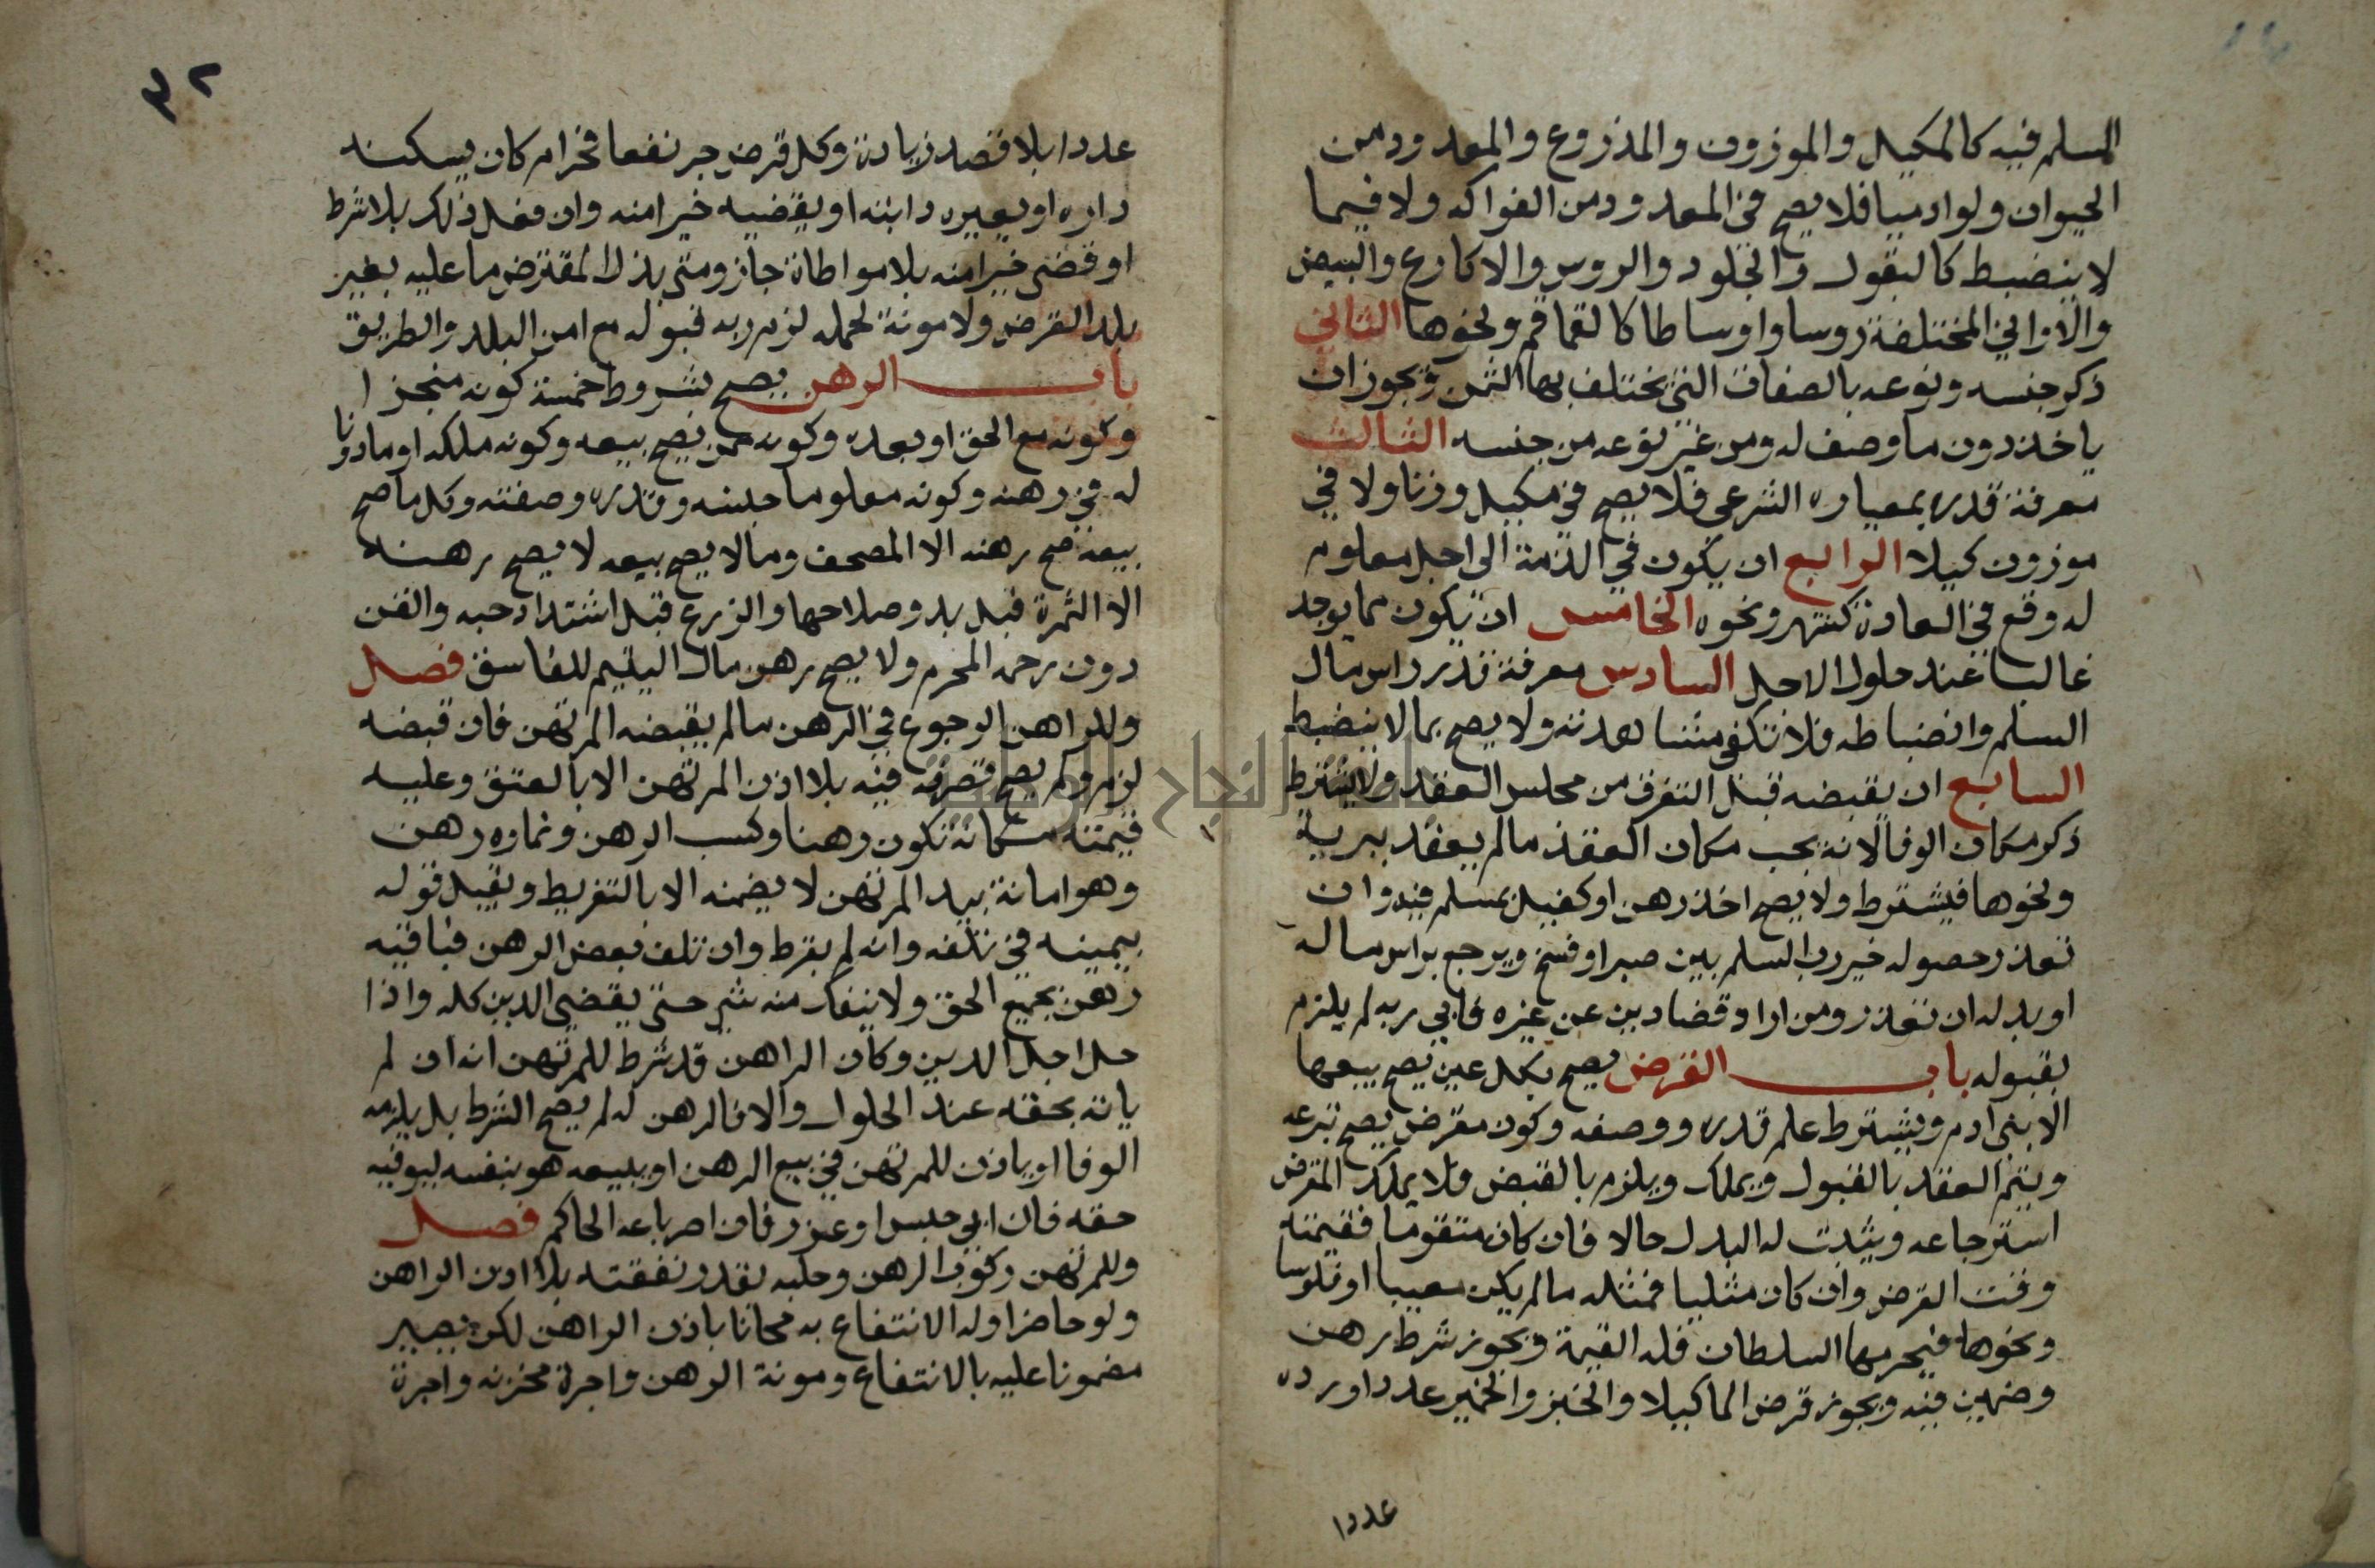 المسلم فيه كالمكيل والموزون والمذروع والمعدود من
الحيوان ولو ادميا فلا يصح في المعدود من الفواكه ولا فيما
لا ينضبط كالبقول والجلود والروس والاكارع والبيض
والاواني المختلفة روسا واوساطا كالقماقم ونحوها الثاني
ذكر جنسه ونوعه بالصفات التي يختلف بها الثمن ويجوز ان
ياخذ دون ما وصف له ومن غير نوعه من جنسه الثالث
معرفة قدره بمعياره الشرعي فلا يصح في مكيل وزنا ولا في
موزون كيلا الرابع ان يكون في الذمة الى اجل معلوم
له وقع في العادة كشهر ونحوه الخامس ان يكون مما يوجد
غالبا عند حلول الاجل السادس معرفة قدر راس مال
السلم وانضباطه فلا تكفي مشاهدته ولا يصح بما لا ينضبط
السابع ان يقبضه قبل التفرق من مجلس العقد ولا يشترط
ذكر مكان الوفا لانه يجب مكان العقد ما لم يعقد ببرية
ونحوها فيشترط ولا يصح اخذ رهن او كفيل بمسلم فيه وان
تعذر حصوله خير رب السلم بين صبر او فسخ ويرجع براس ماله
او بدله ان تعذر ومن اراد قضا دين عن غيره فابى ربه لم يلزم
بقبوله باب القرض يصح بكل عين يصح بيعها
الا بني ادم ويشترط علم قدره ووصفه وكون مقرض يصح تبرعه
ويتم العقد بالقبول ويملك ويلزم بالقبض فلا يملك المقرض
استرجاعه ويثبت له البدل حالا فان كان متقوما فقيمته
وقت القرض وان كان مثليا فمثله ما لم يكن معيبا او فلوسا
ونحوها فيحرمها السلطان فله القيمة ويجوز شرط رهن
وضمين فيه ويجوز قرض الما كيلا والخبز والخمير عددا ورده
عددا
٣٢
عددا بلا قصد زيادة وكل قرض جر نفعا فحرام كان يسكنه
داره او يعيره دابته او يقضيه خيرا منه وان فعل ذلك بلا شرط
او قضى خيرا منه بلا مواطاة جاز ومتى بذل المقترض ما عليه بغير
بلد القرض ولا مونة لحمله لزم ربه قبوله مع امن البلد والطريق
باب الرهن يصح بشروط خمسة كونه منجزا
وكونه مع الحق او بعده وكونه ممن يصح بيعه وكونه ملكه او ماذونا
له في رهنه وكونه معلوما جنسه وقدره وصفته وكل ما صح
بيعه صح رهنه الا المصحف وما لا يصح بيعه لا يصح رهنه
الا الثمرة قبل بدو صلاحها والزرع قبل اشتداد حبه والقن
دون رحمه المحرم ولا يصح رهن مال اليتيم للفاسق فصل
وللراهن الرجوع في الرهن ما لم يقبضه المرتهن فان قبضه
لزم ولم يصح تصرفه فيه بلا اذن المرتهن الا بالعتق وعليه
قيمته مكانه تكون رهنا وكسب الرهن ونماوه رهن
وهو امانة بيد المرتهن لا يضمنه الا بالتفريط ويقبل قوله
بيمينه في تلفه وانه لم يفرط وان تلف بعض الرهن فباقيه
رهن بجميع الحق ولا ينفك منه شي حتى يقضي الدين كله واذا
حل اجل الدين وكان الراهن قد شرط للمرتهن انه ان لم
ياته بحقه عند الحلول والا فالرهن له لم يصح الشرط بل يلزمه
الوفا او ياذن للمرتهن في بيع الرهن او يبيعه هو بنفسه ليوفيه
حقه فان ابى حبس او عزر فان اصر باعه الحاكم فصل
وللمرتهن ركوب الرهن وحلبه بقدر نفقته بلا اذن الراهن
ولو حاضرا وله الانتفاع به مجانا باذن الراهن لكن يصير
مضمونا عليه بالانتفاع ومونة الرهن واجرة مخزنه واجرة